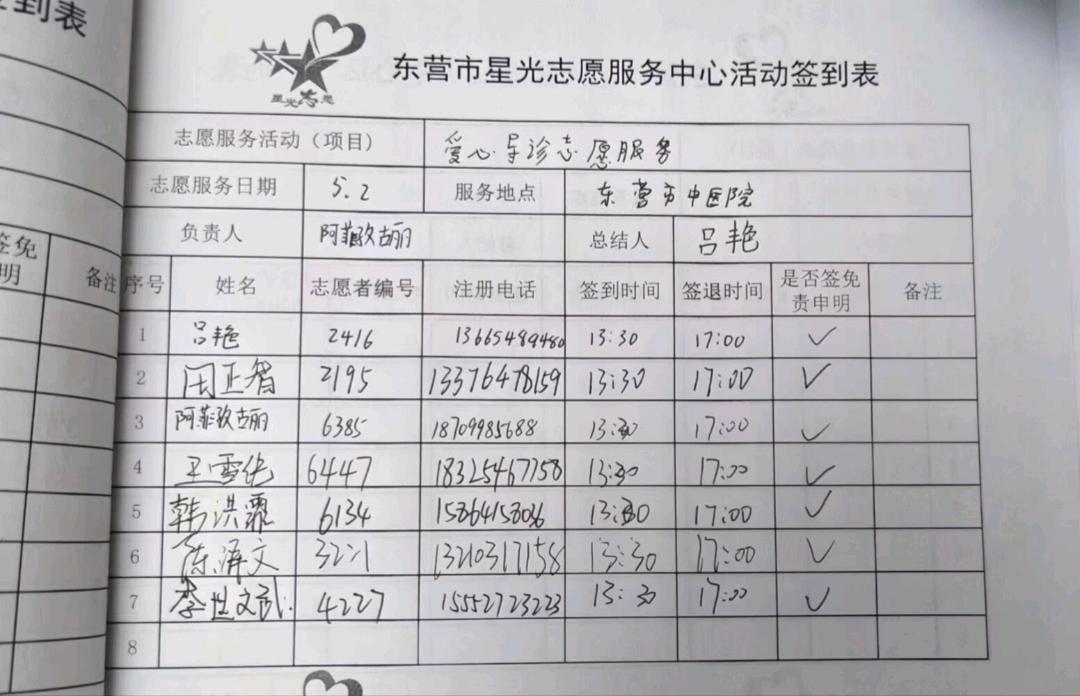 签到表
东营市星光志愿服务中心活动签到表
星光志愿
志愿服务活动（项目） 爱心导诊志愿服务
志愿服务日期 5.2 服务地点 东营市中医院
负责人 阿菲孜古丽 总结人 吕艳
签免 明 备注
序号 姓名 志愿者编号 注册电话 签到时间 签退时间 是否签免责申明 备注
1 吕艳 2416 13665489480 13:30 17:00 ✓
2 闰正智 2195 13376478159 13:30 17:00 ✓
3 阿菲孜古丽 6385 18709985688 13:30 17:00 ✓
4 王雪纯 6447 18325467758 13:30 17:00 ✓
5 韩洪霞 6134 15864158036 13:30 17:00 ✓
6 陈海文 3221 13210317158 13:30 17:00 ✓
7 李性文武 4227 15552723223 13:30 17:00 ✓
8